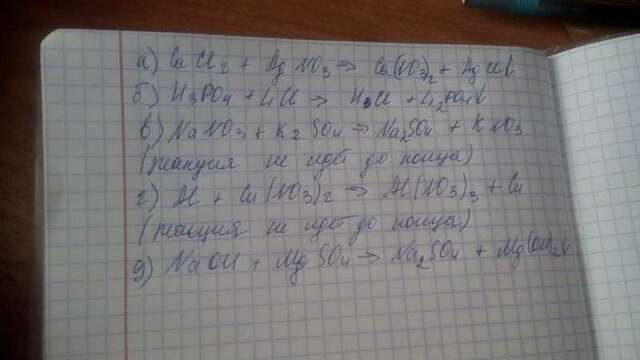 а) CaCl2 + AgNO3 → Ca(NO3)2 + AgCl↓
б) H3PO4 + LiCl → HCl + Li2PO4↓
в) NaNO3 + K2SO4 → Na2SO4 + KNO3
(реакция не идёт до конца)
г) Al + Cu(NO3)2 → Al(NO3)3 + Cu
(реакция не идёт до конца)
д) NaOH + MgSO4 → Na2SO4 + Mg(OH)2↓